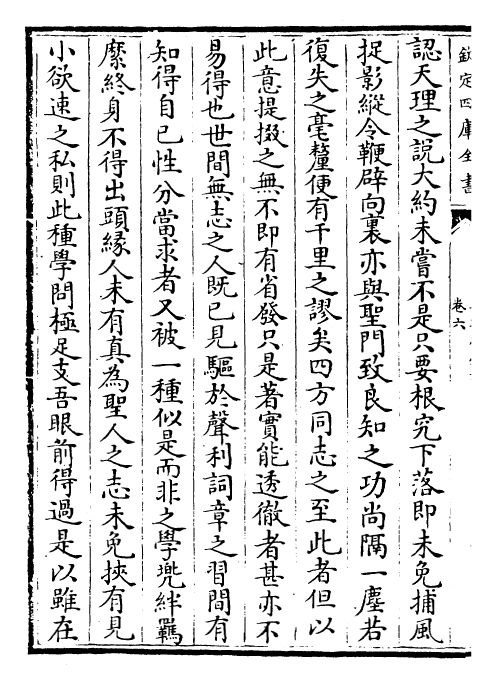 欽定四庫全書
卷六
認天理之說大約未嘗不是只要根究下落即未免捕風
捉影縱令鞭辟向裏亦與聖門致良知之功尚隔一塵若
復失之毫釐便有千里之謬矣四方同志之至此者但以
此意提掇之無不即有省發只是著實能透徹者甚亦不
易得也世間無志之人既已見驅於聲利詞章之習間有
知得自己性分當求者又被一種似是而非之學兜絆羈
縻終身不得出頭緣人未有真為聖人之志未免挾有見
小欲速之私則此種學問極足支吾眼前得過是以雖在